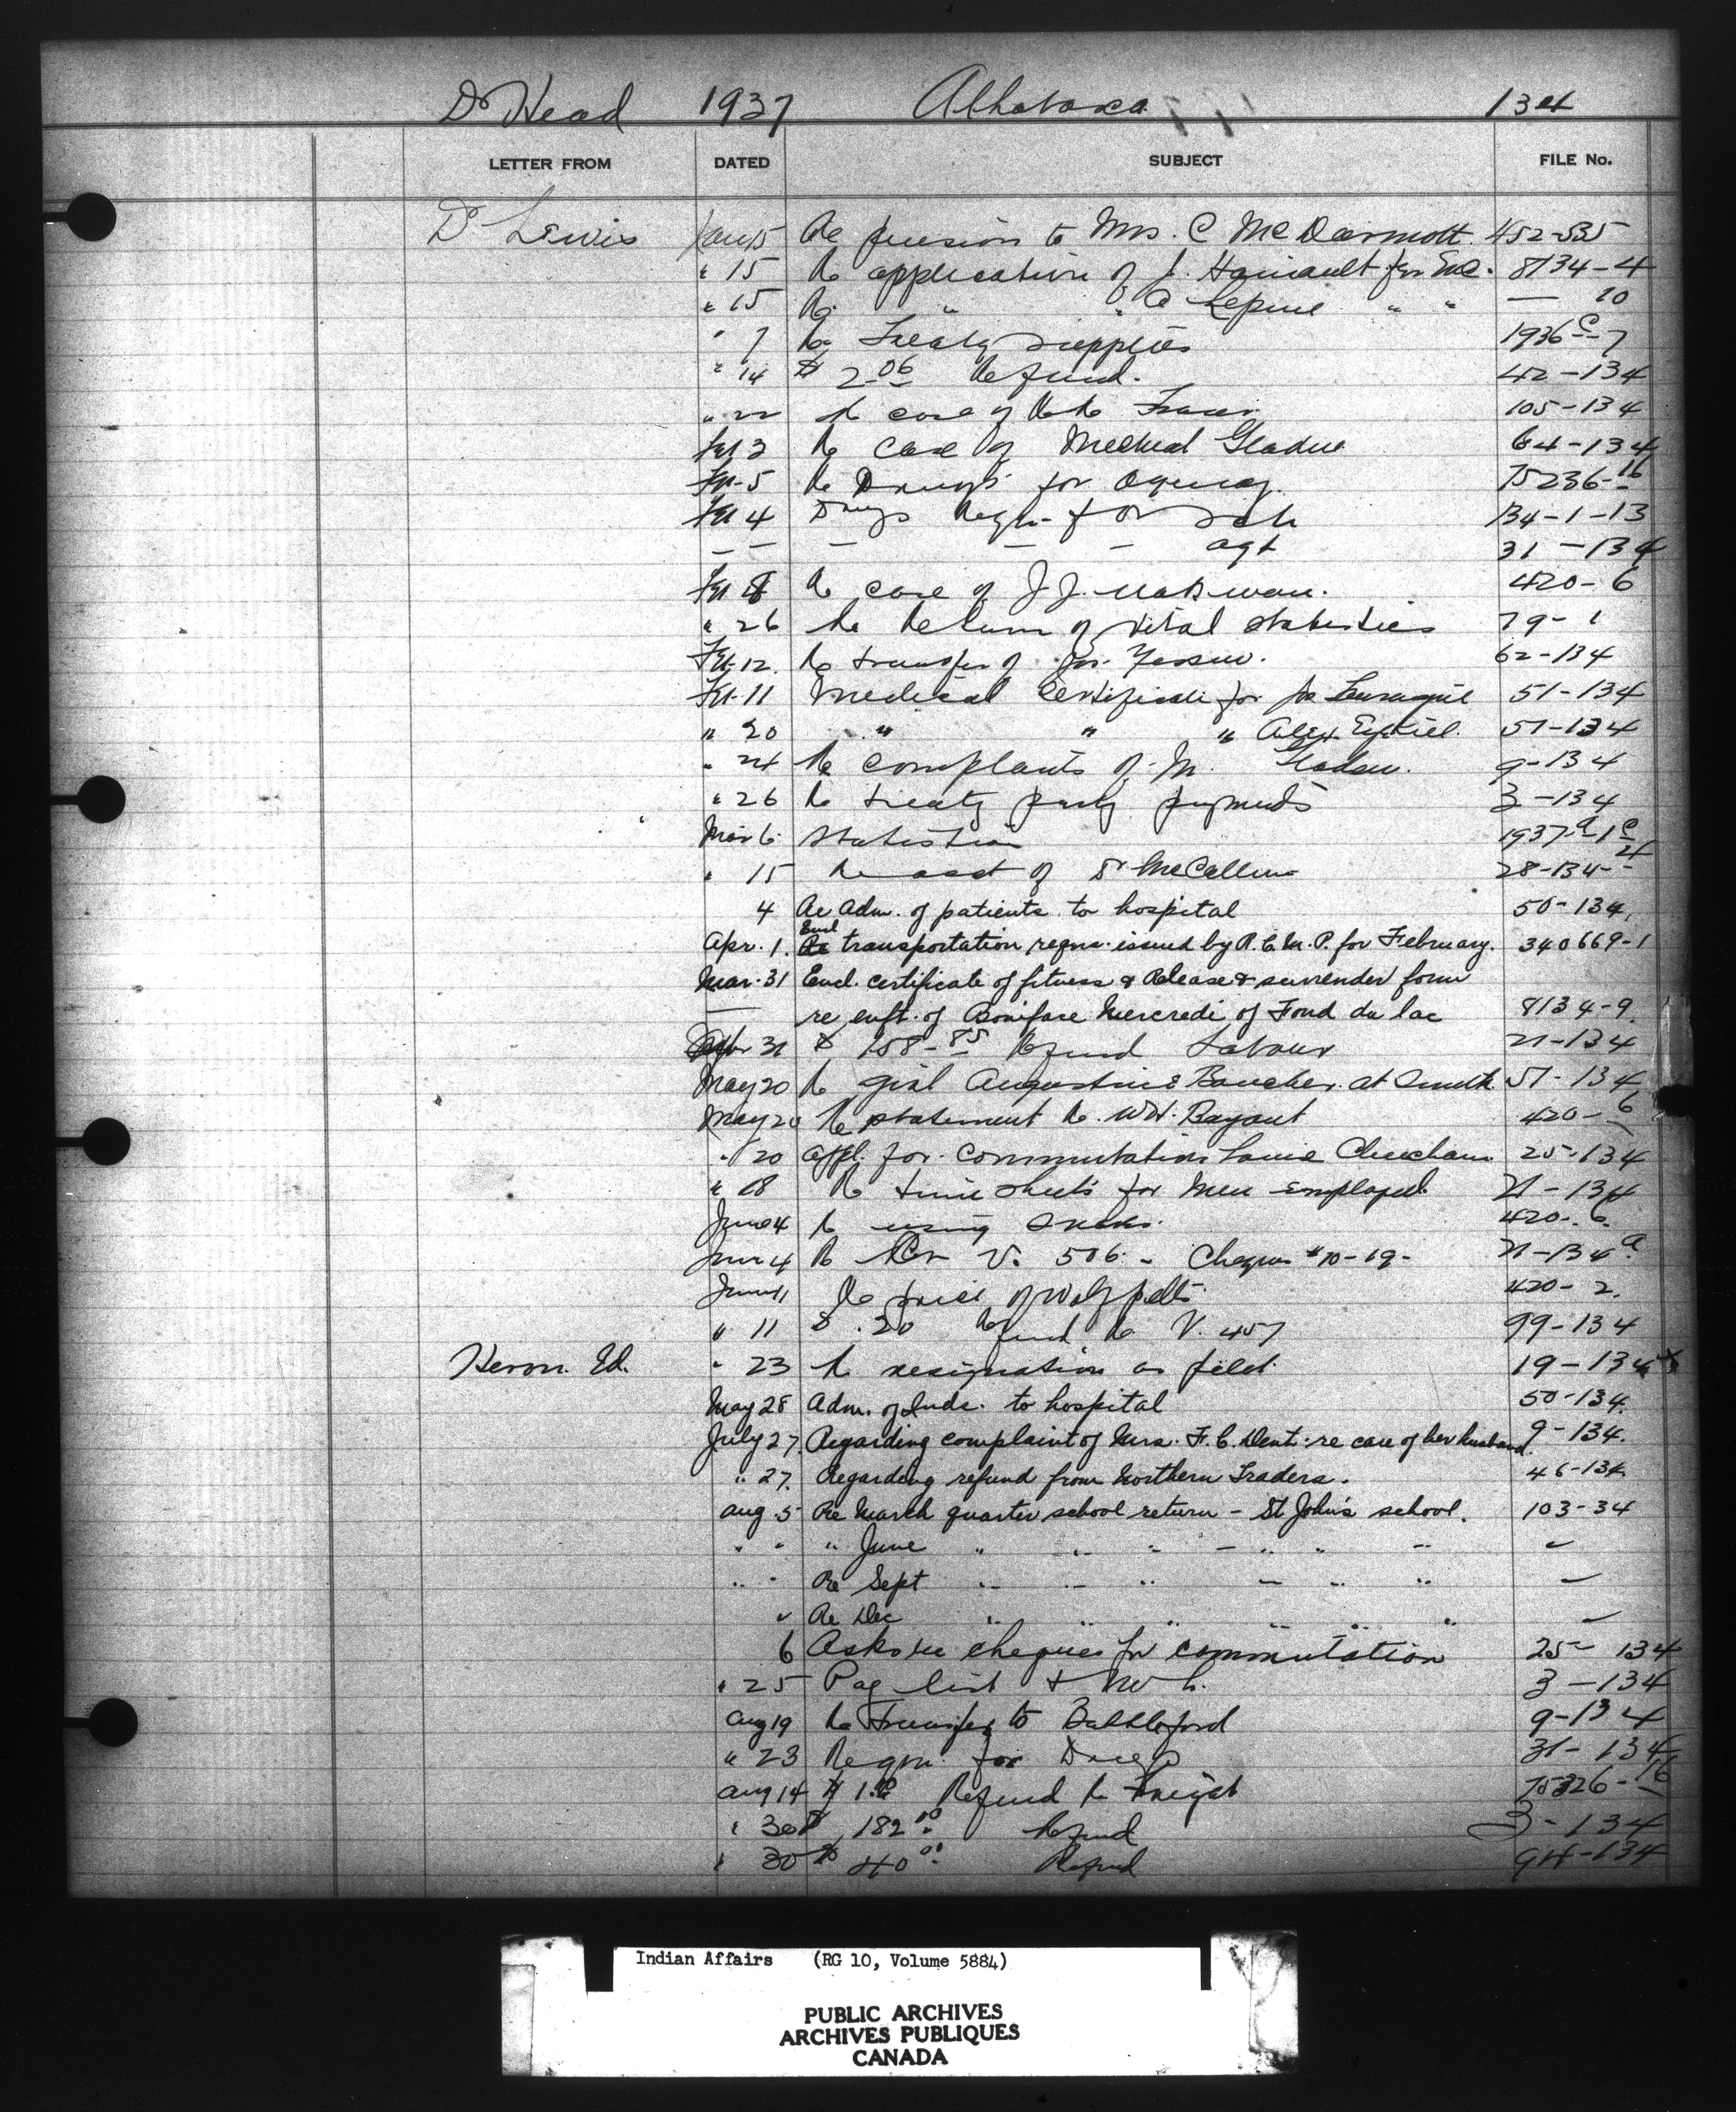 Dr Head 1937 Athabasca 134
LETTER FROM DATED SUBJECT FILE No.
Dr Lewis Jan 15 Re pension to Mrs. C McDarmott 452-535
" 15 Re application of J. for 8134-4
" 15 Re " " Lepine " " — 10
" 7 Re Treaty supplies 1936 C-7
" 14 $ 2.06 Refund. 42-134
" 22 Re case of Fraser 105-134
Feb 3 Re Case of Gladue 64-134
Feb 5 Re Drugs for Agency 75236-16
Feb 4 Drugs Reqn for Sch 134-1-13
— — — — — agt 31-134
Feb 8 Re case of J.J. 420-6
" 26 Re Return of Vital Statistics 79-1
Feb 12 Re transfer of 62-134
Feb 11 Medical Certificate for 51-134
" 20 " " " Alex Ezekiel 51-134
" 24 Re complaints of M. Gladue. 9-134
" 26 Re treaty party payments 3-134
Mar 6 Statistics 1937
" 15 Re acct of Dr McCallum 28-134-4
4 Re Adm. of patients to hospital 50-134
Apr. 1. Encl transportation reqns. issued by R.C.M.P. for February. 340669-1
Mar. 31 Encl. certificate of fitness & Release & surrender form
— re enft. of Boniface Mercredi of Fond du lac 8134-9
31 $ 158-85 Refund Labour 21-134
May 20 Re girl Augustine Boucher at Smith 51-134
May 20 Re statement Re. W.H. Bayant 420-6
" 20 Appl. for Commutation Louise Cheecham 25-134
" 18 Re time sheets for Men employed. 21-134
June 4 Re using 420-6
June 4 Re V. 506 - Cheques # 10-19- 21-134 a
June 11 Re price of Wolf pelts 420-2.
" 11 $ .20 Refund Re V. 457 99-134
Heron. Ed. " 23 Re resignation as 19-134
May 28 Adm. of Inds. to hospital 50-134.
July 27. Regarding complaint of Mrs. F.C. Dent re case of her husband 9-134.
" 27. Regarding refund from Northern Traders. 46-134.
Aug. 5 Re March quarter school return - St John's school. 103-34
" " " June " " " - " " " "
" " Re Sept " " " - " " " —
" Re Dec " " " " " " —
6 Asks re cheques for commutation 25-134
" 25 Pay list 3-134
Aug 19 Re transfer to Battleford 9-134
" 23 Reqn. for Drugs 31-134
Aug 14 Refund Re Freight 75326-16
" 30 $ 182.00 Refund 3-134
" 30 $ 40.00 Refund 94-134
Indian Affairs (RG 10, Volume 5884)
PUBLIC ARCHIVES
ARCHIVES PUBLIQUES
CANADA